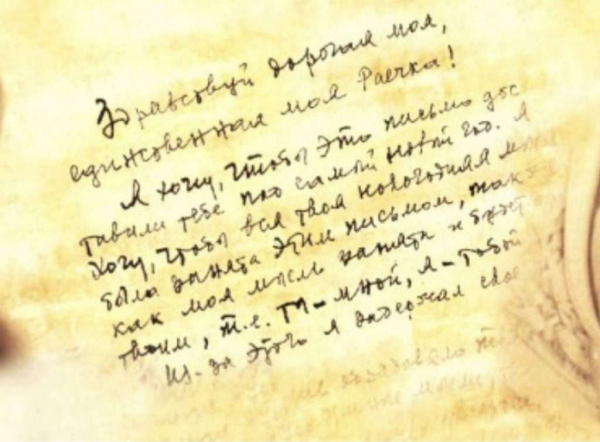 Здравствуй дорогая моя,
единственная моя Раечка!
Я хочу, чтобы это письмо дос
тавили тебе под самый новый год. Я
хочу, чтобы вся твоя новогодняя
была занята этим письмом, так же
как моя мысль занята и будет
твоим, т.е. ты – мной, я – тобой
Из-за этого я задержал свое